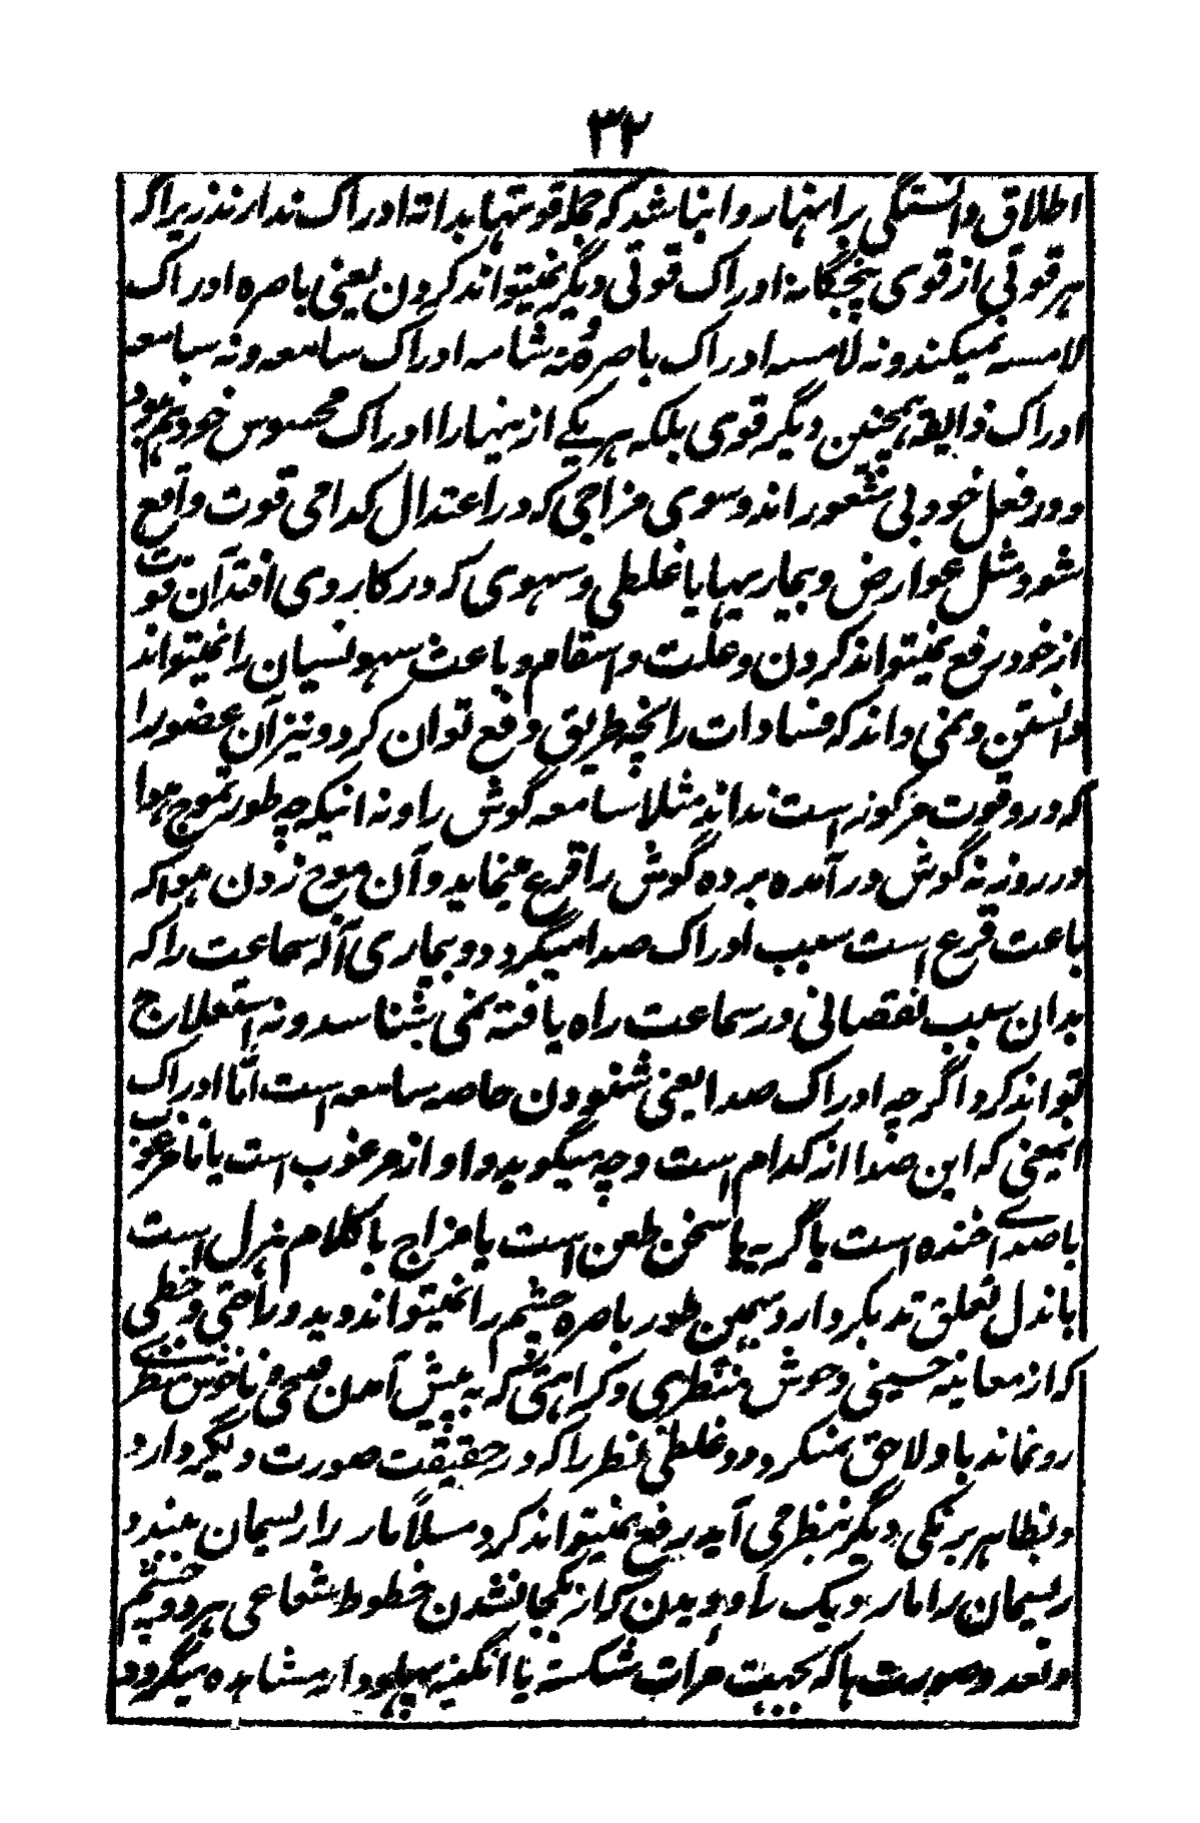 ۳۲
اطلاق دانستگی برانیهار وا نباشد که جمله قوتها بداته ادراک ندارند زیراکه
هر قوتی از قوی پنجگانه ادراک قوتی دیگر نمیتواند کردن یعنی باصره ادراک
لامسه نمیکند و نه لامسه ادراک باصره و نه شامه ادراک سامعه و نه سامعه
ادراک ذایقه همچنین دیگر قوی بلکه هر یکے ازینها را ادراک محسوس خود هم نبود
و در فعل خود بی شعور اند و سوی مزاجی که در اعتدال کدامی قوت واقع
شود مثل عوارض و بیماریها یا غلطی و سهوی که در کار وی افتد آن قوت
از خود رفع نمیتواند کردن و علت و اسقام و باعث سهو نسیان را نمیتواند
دانستن و نمی داند که فسادات را بچه طریق دفع توان کرد و نیز آن عضو را
که در و قوت مرکوز است نداند مثلا سامعه گوش را و نه اینکه چه طور تموج هوا
در روزنه گوش در آمده پرده گوش را قرع مینماید و آن موج زدن هوا که
باعث قرع است سبب ادراک صدا میگردد و بیماری آلهٔ سماعت را که
بدان سبب نقصانی در سماعت راه یافته نمی شناسد و نه استعلاج
تواند کرد اگرچه ادراک صدا یعنی شنودن خاصه سامعه است امّا ادراک
اینمعنی که این صدا از کدام است و چه میگوید و اواز مرغوب است یا نامرغوب
یا صدای خنده است یا گریه یا سخن طعن است یا مزاح یا کلام هزل است
باندل تعلق تدبکر دارد و همین طور باصره چشم را نمیتواند دید و راحتی و حظی
که از معاینه حسینی و خوش منظری و کراهتی که به پیش آمدن قبیحی و ناخوش منظری
رو نماید باو لاحق نمیگردد و غلطی نظر را که در حقیقت صورت دیگر دارد
و بظاهر برنگی دیگر بنظر می آید برفع نمیتواند کرد مثلاً مار را ریسمان بیند و
ریسمان را مار و یک را دو دیدن که از یکجا نشدن خطوط شعاعی هر دو چشم
و تعدد صورت ها که بجهت مرأت شکسته یا آئینه پهلودار مشاهده میگردد